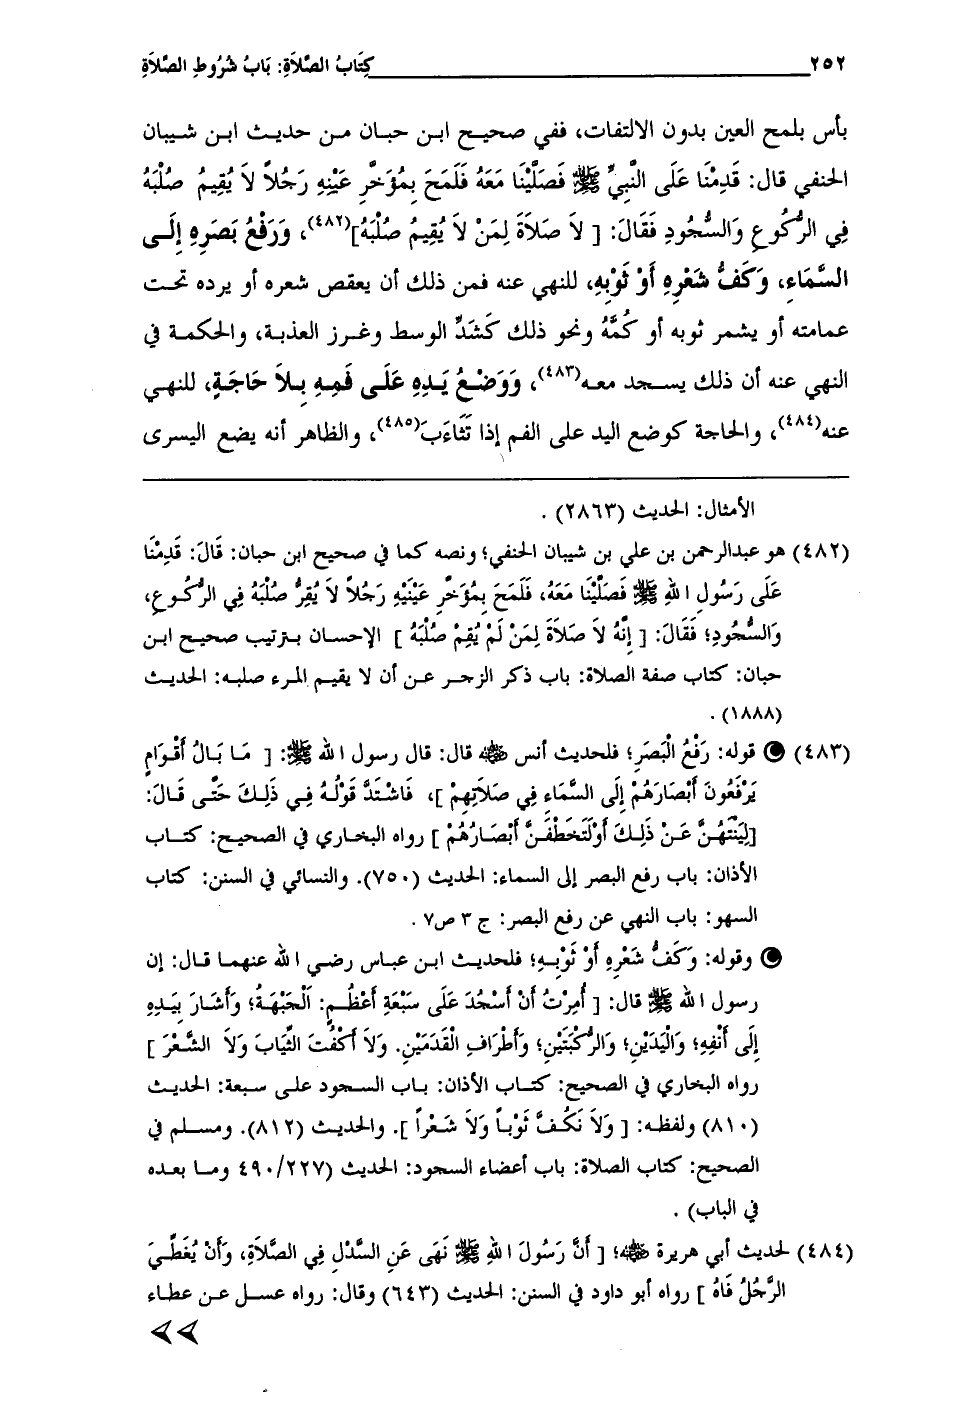 ٢٥٢ كِتَابُ الصَّلاَةِ: بَابُ شُرُوطِ الصَّلاَةِ
بأس بلمح العين بدون الالتفات، ففي صحيح ابن حبان من حديث ابن شيبان
الحنفي قال: قَدِمْنَا عَلَى النَّبِيِّ ﷺ فَصَلَّيْنَا مَعَهُ فَلَمَحَ بِمُؤَخَّرِ عَيْنِهِ رَجُلاً لاَ يُقِيمُ صُلْبَهُ
فِي الرُّكُوعِ وَالسُّجُودِ فَقَالَ: [ لاَ صَلاَةَ لِمَنْ لاَ يُقِيمُ صُلْبَهُ](٤٨٢)، وَرَفْعُ بَصَرِهِ إِلَى
السَّمَاءِ، وَكَفُّ شَعْرِهِ أَوْ ثَوْبِهِ، للنهي عنه فمن ذلك أن يعقص شعره أو يرده تحت
عمامته أو يشمر ثوبه أو كُمَّهُ ونحو ذلك كَشَدِّ الوسط وغرز العذبة، والحكمة في
النهي عنه أن ذلك يسجد معه(٤٨٣)، وَوَضْعُ يَدِهِ عَلَى فَمِهِ بِلاَ حَاجَةٍ، للنهي
عنه(٤٨٤)، والحاجة كوضع اليد على الفم إذا تَثَاءَبَ(٤٨٥)، والظاهر أنه يضع اليسرى
الأمثال: الحديث (٢٨٦٣) .
(٤٨٢) هو عبدالرحمن بن علي بن شيبان الحنفي؛ ونصه كما في صحيح ابن حبان: قَالَ: قَدِمْنَا
عَلَى رَسُولِ اللهِ ﷺ فَصَلَّيْنَا مَعَهُ، فَلَمَحَ بِمُؤَخَّرِ عَيْنَيْهِ رَجُلاً لاَ يُقِرُّ صُلْبَهُ فِي الرُّكُوعِ،
وَالسُّجُودِ؛ فَقَالَ: [ إِنَّهُ لاَ صَلاَةَ لِمَنْ لَمْ يُقِمْ صُلْبَهُ ] الإحسان بترتيب صحيح ابن
حبان: كتاب صفة الصلاة: باب ذكر الزجر عن أن لا يقيم المرء صلبه: الحديث
(١٨٨٨) .
(٤٨٣) قوله: رَفْعُ الْبَصَرِ؛ فلحديث أنس ﷺ قال: قال رسول الله ﷺ: [ مَا بَالُ أَقْوَامٍ
يَرْفَعُونَ أَبْصَارَهُمْ إِلَى السَّمَاءِ فِي صَلاَتِهِمْ ]، فَاشْتَدَّ قَوْلُهُ فِي ذَلِكَ حَتَّى قَالَ:
[لِيَنْتَهُنَّ عَنْ ذَلِكَ أَوْ لَتُخْطَفَنَّ أَبْصَارُهُمْ ] رواه البخاري في الصحيح: كتاب
الأذان: باب رفع البصر إلى السماء: الحديث (٧٥٠). والنسائي في السنن: كتاب
السهو: باب النهي عن رفع البصر: ج ٣ ص٧ .
وقوله: وَكَفُّ شَعْرِهِ أَوْ ثَوْبِهِ؛ فلحديث ابن عباس رضي الله عنهما قال: إن
رسول الله ﷺ قال: [ أُمِرْتُ أَنْ أَسْجُدَ عَلَى سَبْعَةِ أَعْظُمٍ: اَلْجَبْهَةُ؛ وَأَشَارَ بِيَدِهِ
إِلَى أَنْفِهِ؛ وَالْيَدَيْنِ؛ وَالرُّكْبَتَيْنِ؛ وَأَطْرَافِ الْقَدَمَيْنِ. وَلاَ أَكْفُتَ الثِّيَابَ وَلاَ الشَّعْرَ ]
رواه البخاري في الصحيح: كتاب الأذان: باب السجود على سبعة: الحديث
(٨١٠) ولفظه: [ وَلاَ نَكُفَّ ثَوْباً وَلاَ شَعْراً ]. والحديث (٨١٢). ومسلم في
الصحيح: كتاب الصلاة: باب أعضاء السجود: الحديث (٤٩٠/٢٢٧ وما بعده
في الباب) .
(٤٨٤) لحديث أبي هريرة ﷺ؛ [ أَنَّ رَسُولَ اللهِ ﷺ نَهَى عَنِ السَّدْلِ فِي الصَّلاَةِ، وَأَنْ يُغَطِّيَ
الرَّجُلُ فَاهُ ] رواه أبو داود في السنن: الحديث (٦٤٣) وقال: رواه عسل عن عطاء